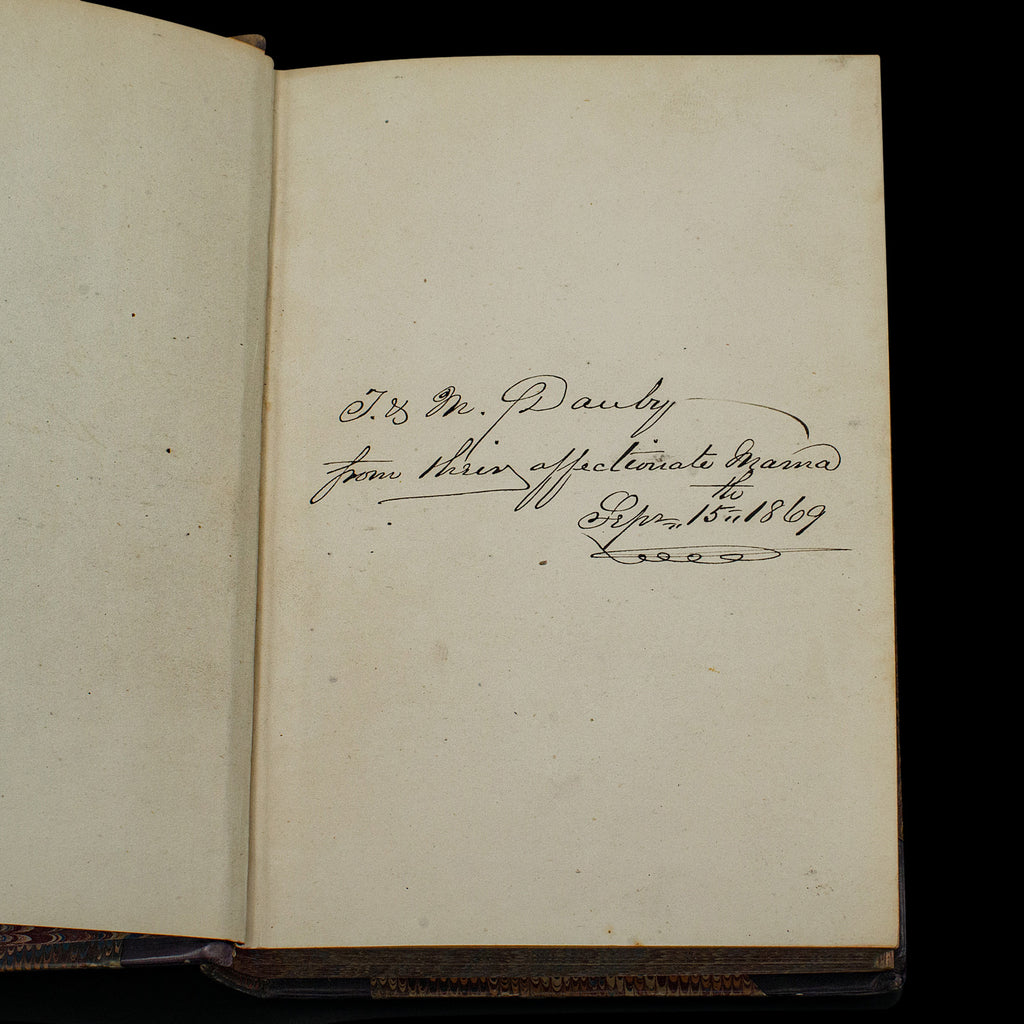 T. & M. Dauby
from their affectionate Mama
Sepr. 15th 1869